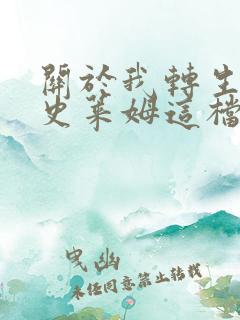 關於我轉生
史萊姆這檔
曳幽
未经同意禁止转载